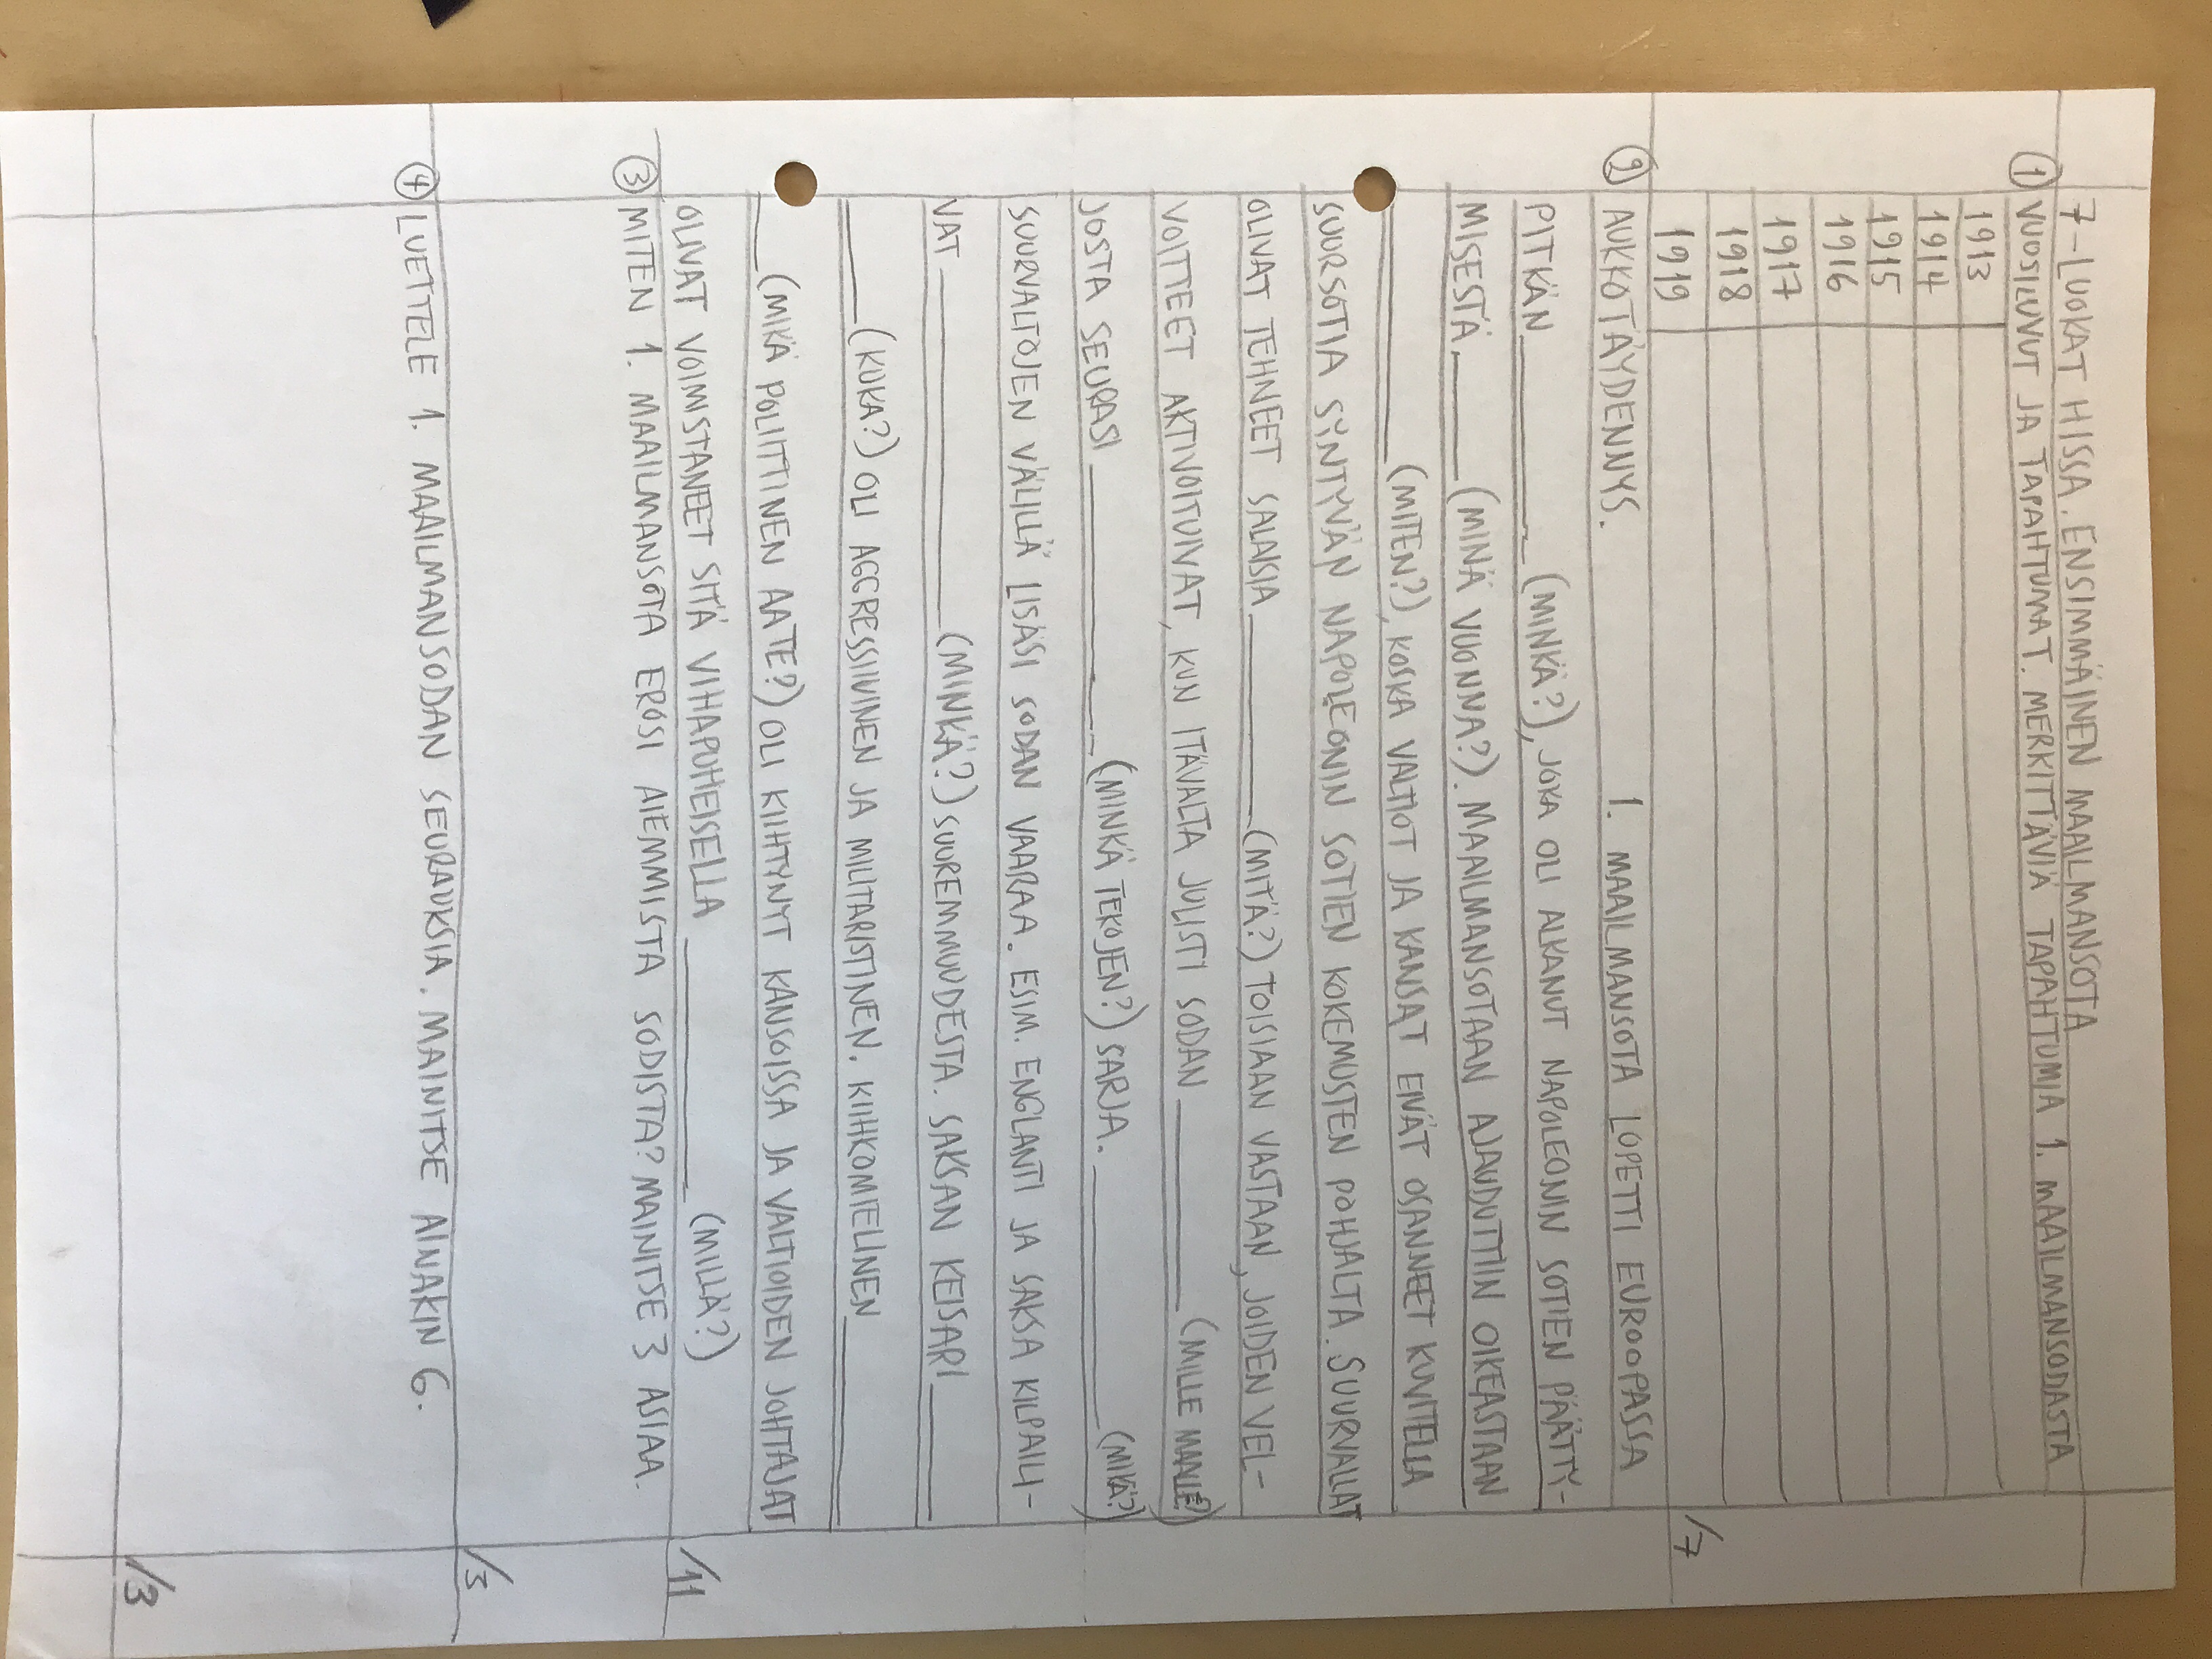 7-LUOKAT HISSA. ENSIMMÄINEN MAAILMANSOTA
① VUOSILUVUT JA TAPAHTUMAT. MERKITTÄVIÄ TAPAHTUMIA 1. MAAILMANSODASTA
1913
1914
1915
1916
1917
1918
1919
/7
② AUKKOTÄYDENNYS. 1. MAAILMANSOTA LOPETTI EUROOPASSA
PITKÄN ______ (MINKÄ?), JOKA OLI ALKANUT NAPOLEONIN SOTIEN PÄÄTTY-
MISESTÄ ______ (MINÄ VUONNA?). MAAILMANSOTAAN AJAUDUTTIIN OIKEASTAAN
______ (MITEN?), KOSKA VALTIOT JA KANSAT EIVÄT OSANNEET KUVITELLA
SUURSOTIA SYNTYVÄN NAPOLEONIN SOTIEN KOKEMUSTEN POHJALTA. SUURVALLAT
OLIVAT TEHNEET SALAISIA ______ (MITÄ?) TOISIAAN VASTAAN, JOIDEN VEL-
VOITTEET AKTIVOITUIVAT, KUN ITÄVALTA JULISTI SODAN ______ (MILLE MAALLE?)
JOSTA SEURASI ______ (MINKÄ TEKOJEN?) SARJA. ______ (MIKÄ?)
SUURVALTOJEN VÄLILLÄ LISÄSI SODAN VAARAA. ESIM. ENGLANTI JA SAKSA KILPAILI-
VAT ______ (MINKÄ?) SUUREMMUUDESTA. SAKSAN KEISARI ______
______ (KUKA?) OLI AGGRESSIIVINEN JA MILITARISTINEN. KIIHKOMIELINEN ______
__ (MIKÄ POLIITTINEN AATE?) OLI KIIHTYNYT KANSOISSA JA VALTIOIDEN JOHTAJAT
OLIVAT VOIMISTANEET SITÄ VIHAPUHEISELLA ______ (MILLÄ?)
/11
③ MITEN 1. MAAILMANSOTA EROSI AIEMMISTA SODISTA? MAINITSE 3 ASIAA.
/3
④ LUETTELE 1. MAAILMANSODAN SEURAUKSIA. MAINITSE AINAKIN 6.
/3